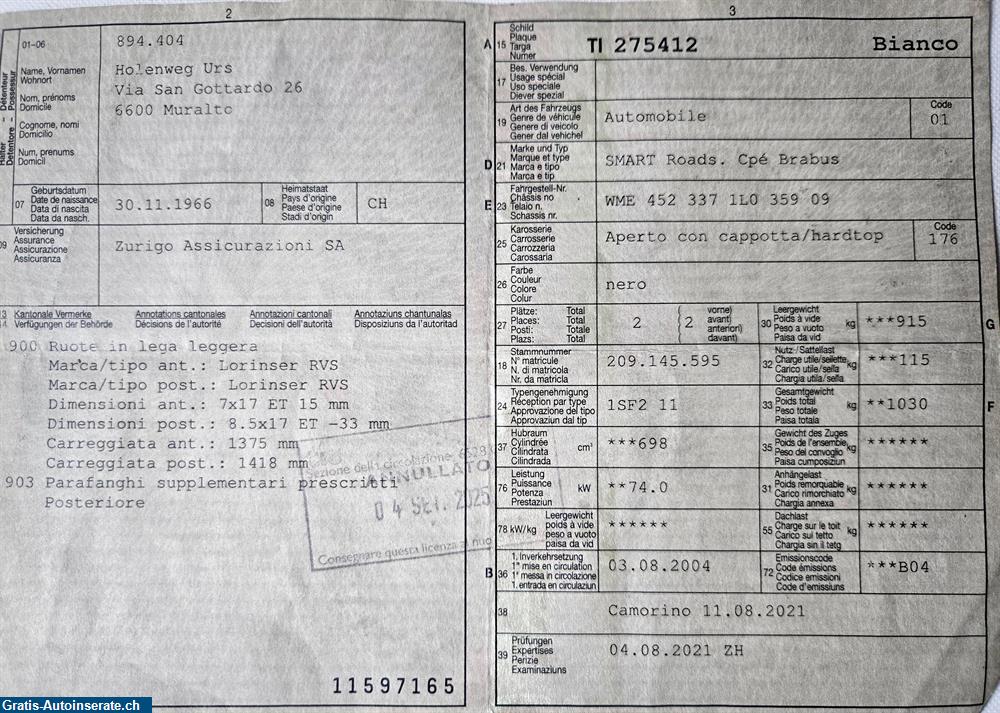 2
01-06
894.404
Halter - Détenteur
Detentore - Possessur
Name, Vornamen
Wohnort
Nom, prénoms
Domicile
Cognome, nomi
Domicilio
Num, prenums
Domicil
Holenweg Urs
Via San Gottardo 26
6600 Muralto
07
Geburtsdatum
Date de naissance
Data di nascita
Data da nasch.
30.11.1966
08
Heimatstaat
Pays d'origine
Paese d'origine
Stadi d'origin
CH
09
Versicherung
Assurance
Assicurazione
Assicuranza
Zurigo Assicurazioni SA
13 Kantonale Vermerke Annotations cantonales Annotazioni cantonali Annotaziuns chantunalas
14 Verfügungen der Behörde Décisions de l'autorité Decisioni dell'autorità Disposiziuns da l'autoritad
900 Ruote in lega leggera
Marca/tipo ant.: Lorinser RVS
Marca/tipo post.: Lorinser RVS
Dimensioni ant.: 7x17 ET 15 mm
Dimensioni post.: 8.5x17 ET -33 mm
Carreggiata ant.: 1375 mm
Carreggiata post.: 1418 mm
903 Parafanghi supplementari prescritti
Posteriore
Sezione della circolazione 6528
ANNULLATO
04 SET. 2025
Consegnare questa licenza al nuo
11597165
3
A 15
Schild
Plaque
Targa
Numer
TI 275412 Bianco
17
Bes. Verwendung
Usage spécial
Uso speciale
Diever spezial
19
Art des Fahrzeugs
Genre de véhicule
Genere di veicolo
Gener dal vehichel
Automobile
Code
01
D 21
Marke und Typ
Marque et type
Marca e tipo
Marca e tip
SMART Roads. Cpé Brabus
E 23
Fahrgestell-Nr.
Châssis no
Telaio n.
Schassis nr.
WME 452 337 1L0 359 09
25
Karosserie
Carrosserie
Carrozzeria
Carossaria
Aperto con cappotta/hardtop
Code
176
26
Farbe
Couleur
Colore
Colur
nero
27
Plätze: Total
Places: Total
Posti: Totale
Plazs: Total
2
{ 2
vorne)
avant)
anteriori)
davant)
30
Leergewicht
Poids à vide
Peso a vuoto
Paisa da vid
kg
***915
G
18
Stammnummer
N° matricule
N. di matricola
Nr. da matricla
209.145.595
32
Nutz-/Sattellast
Charge utile/sellette
Carico utile/sella
Chargia utila/sella
kg
***115
24
Typengenehmigung
Réception par type
Approvazione del tipo
Approvaziun dal tip
1SF2 11
33
Gesamtgewicht
Poids total
Peso totale
Paisa totala
kg
**1030
F
37
Hubraum
Cylindrée
Cilindrata
Cilindrada
cm³
***698
35
Gewicht des Zuges
Poids de l'ensemble
Peso del convoglio
Paisa cumposiziun
kg
******
76
Leistung
Puissance
Potenza
Prestaziun
kW
**74.0
31
Anhängelast
Poids remorquable
Carico rimorchiato
Chargia annexa
kg
******
78 kW/kg
Leergewicht
poids à vide
peso a vuoto
paisa da vid
******
55
Dachlast
Charge sur le toit
Carico sul tetto
Chargia sin il tetg
kg
******
B 36
1. Inverkehrsetzung
1re mise en circulation
1a messa in circolazione
1. entrada en circulaziun
03.08.2004
72
Emissionscode
Code émissions
Codice emissioni
Code d'emissiuns
***B04
38
Camorino 11.08.2021
39
Prüfungen
Expertises
Perizie
Examinaziuns
04.08.2021 ZH
Gratis-Autoinserate.ch